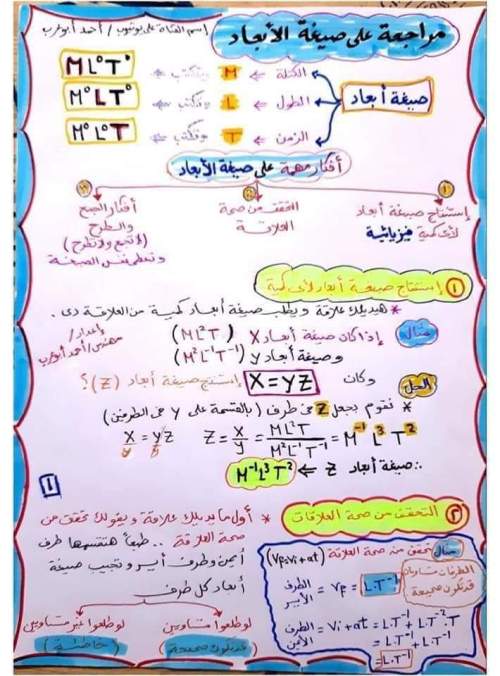 مراجعة على صيغة الأبعاد
إسم القناة على يوتيوب / أحمد أبو عرب
صيغة أبعاد
الكتلة ← M وتكتب ← M L⁰ T⁰
الطول ← L وتكتب ← M⁰ L T⁰
الزمن ← T وتكتب ← M⁰ L⁰ T
أفكار مهمة على صيغة الأبعاد
١
إستنتاج صيغة أبعاد
لأى كمية فيزيائية
٢
التحقق من صحة
العلاقة
٣
أفكار الجمع
والطرح
(لا تجمع ولا تطرح)
وتعطى نفس الصيغة
١ إستنتاج صيغة أبعاد لأى كمية
* هيديلك علاقة ويطلب صيغة أبعاد كمية من العلاقة دى.
مثال إذا كان صيغة أبعاد X (ML²T)
وصيغة أبعاد y (M²L⁻¹T⁻¹)
وكان X = yZ إستنتج صيغة أبعاد (Z)؟
إعداد/
مهندس/أحمد أبو عرب
الحل
* نقوم بجعل Z فى طرف (بالقسمة على y فى الطرفين)
X/y = yZ/y Z = X/y = ML²T / M²L⁻¹T⁻¹ = M⁻¹ L³ T²
∴ صيغة أبعاد Z ← M⁻¹L³T²
١
٢ التحقق من صحة العلاقات
* أول ما يديلك علاقة ويقولك تحقق من
صحة العلاقة .. طبعاً هتقسمها طرف
أيمن وطرف أيسر وتجيب صيغة
أبعاد كل طرف
لو طلعوا متساويين
قد تكون صحيحة
لو طلعوا غير متساويين
خاطئة
مثال تحقق من صحة العلاقة (Vf = Vi + at)
الطرف الأيسر = Vf = L.T⁻¹
الطرفان متساويان
قد تكون صحيحة
الطرف الأيمن = Vi + at = L.T⁻¹ + L.T⁻².T
= L.T⁻¹ + L.T⁻¹
= L.T⁻¹